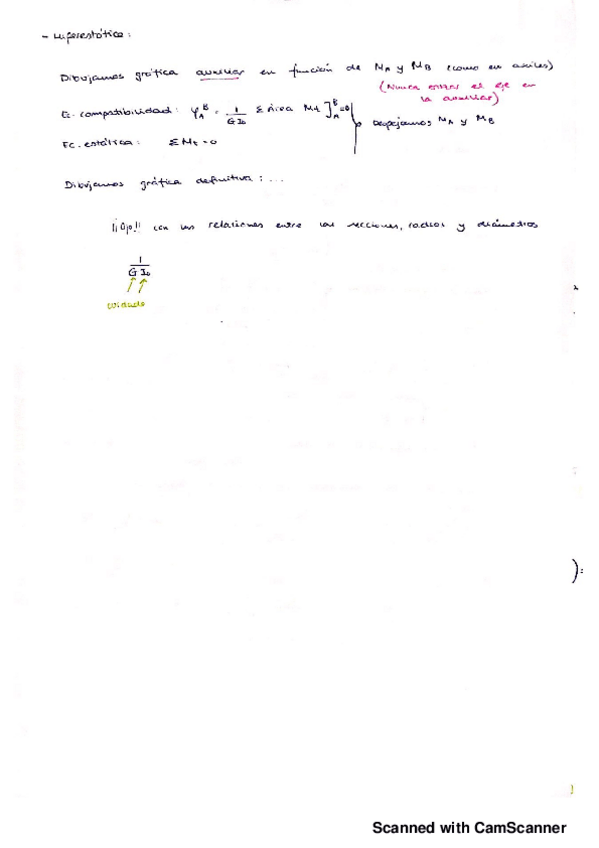 - Hiperestática:
Dibujamos gráfica auxiliar en función de MA y MB (como en axiles)
(Nunca cortar el eje en
la auxiliar)
Ec. compatibilidad: φ_A^B = 1/(G I₀) Σ Área Mt ]_A^B = 0
Despejamos MA y MB
Ec. estática: Σ Mt = 0
Dibujamos gráfica definitiva: ...
¡¡Ojo!! con las relaciones entre las secciones, radios y diámetros
1/(G I₀)
cuidado
):
Scanned with CamScanner